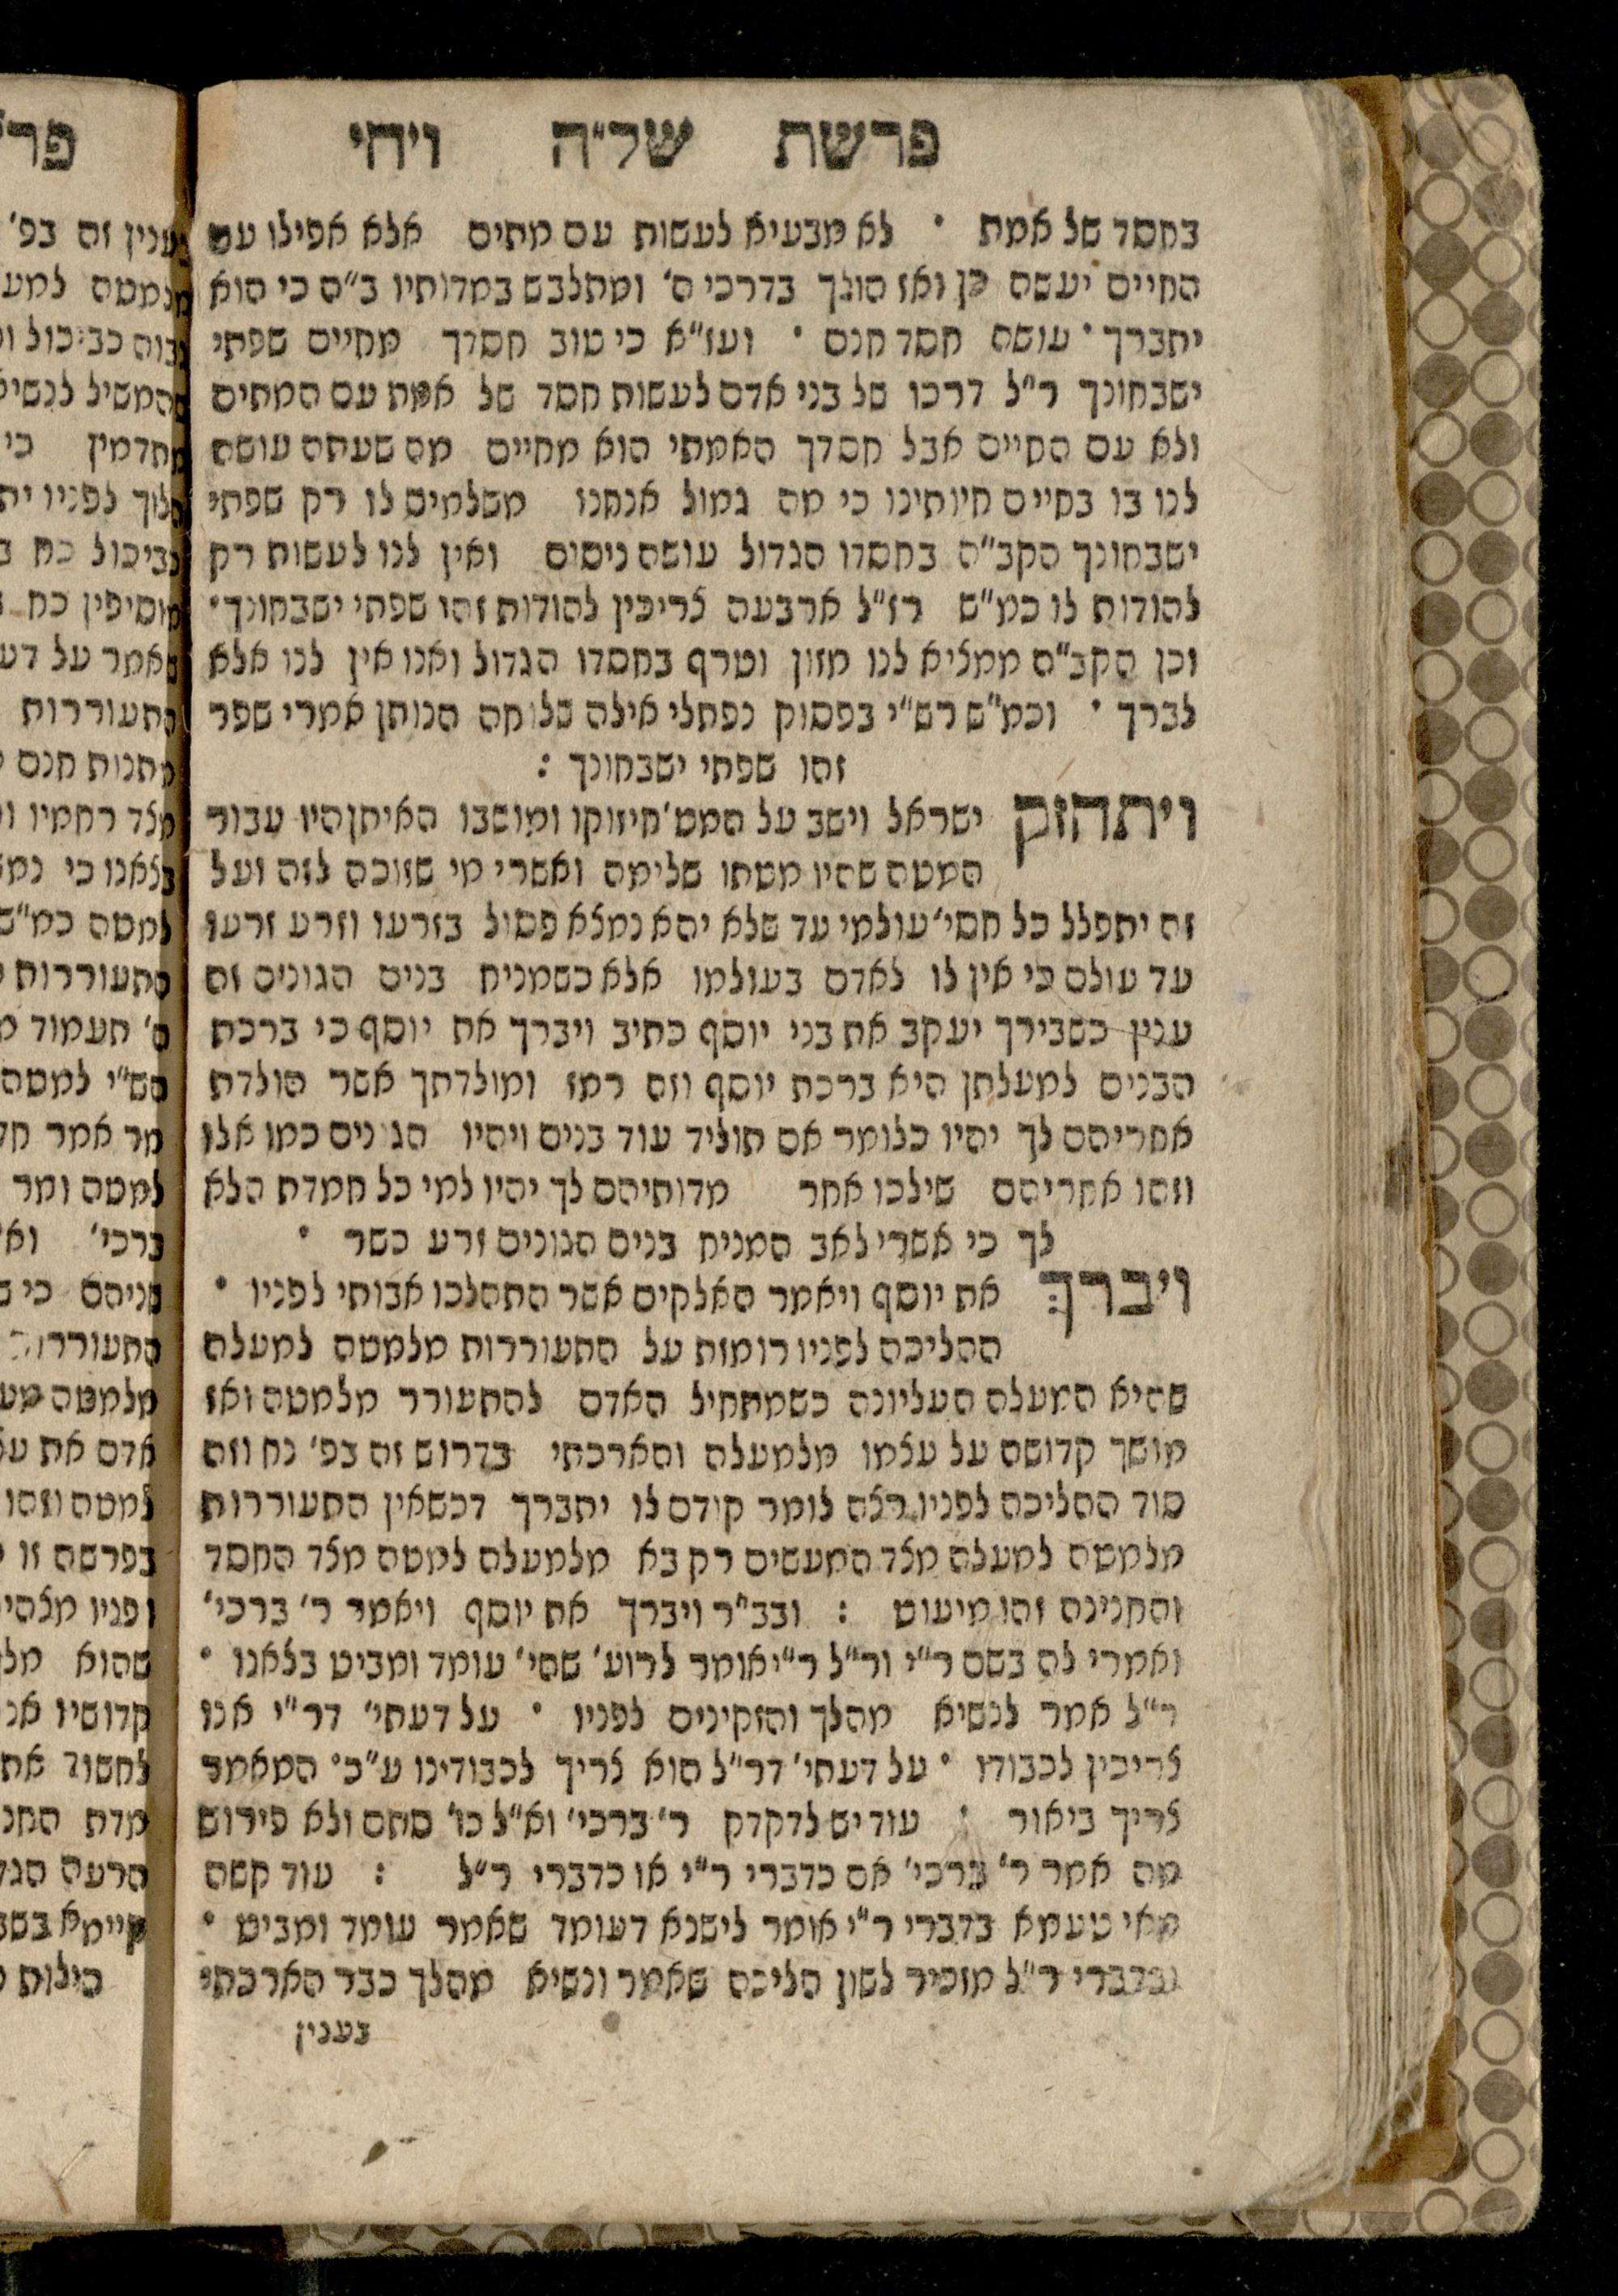 פרשת של״ה ויחי
בחסד של אמת • לא מבעיא לעשות עם מתים אלא אפילו עם
החיים יעשה כן ואז הולך בדרכי ה׳ ומתלבש במדותיו ב״ה כי הוא
יתברך • עושה חסד חנם • ועז״א כי טוב חסדך מחיים שפתי
ישבחונך ר״ל דרכו של בני אדם לעשות חסד של אמת עם המתים
ולא עם החיים אבל חסדך האמתי הוא מחיים מה שעתה עושה
לנו בו בחיים חיותינו כי מה גמול אנחנו משלמים לו רק שפתי
ישבחונך הקב״ה בחסדו הגדול עושה ניסים ואין לנו לעשות רק
להודות לו כמ״ש רז״ל ארבעה צריכין להודות זהו שפתי ישבחונך •
וכן הקב״ה ממציא לנו מזון וטרף בחסדו הגדול ואנו אין לנו אלא
לברך • וכמ״ש רש״י בפסוק נפתלי אילה שלוחה הנותן אמרי שפר
זהו שפתי ישבחונך :
ויתחזק ישראל וישב על המט׳ חיזוקו ומושבו האיתן היו עבור
המטה שהיו מטתו שלימה ואשרי מי שזוכה לזה ועל
זה יתפלל כל חסי׳ עולמי עד שלא יהא נמצא פסול בזרעו וזרע זרעו
עד עולם כי אין לו לאדם בעולמו אלא כשמניח בנים הגונים זה
ענין כשבירך יעקב את בני יוסף כתיב ויברך את יוסף כי ברכת
הבנים למעלתן היא ברכת יוסף וזה רמז ומולדתך אשר הולדת
אחריהם לך יהיו כלומר אם תוליד עוד בנים ויהיו הגונים כמו אלו
וזהו אחריהם שילכו אחר מדותיהם לך יהיו למי כל חמדת הלא
לך כי אשרי לאב המניח בנים הגונים זרע כשר •
ויברך את יוסף ויאמר האלקים אשר התהלכו אבותי לפניו •
ההליכה לפניו רומזת על התעוררות מלמטה למעלה
שהיא המעלה העליונה כשמתחיל האדם להתעורר מלמטה ואז
מושך קדושה על עצמו מלמעלה והארכתי בדרוש זה בפ׳ נח וזה
סוד ההליכה לפניו רצה לומר קודם לו יתברך דכשאין התעוררות
מלמטה למעלה מצד המעשים רק בא מלמעלה למטה מצד החסד
והחנינה זהו מיעוט : ובב״ר ויברך את יוסף ויאמר ר׳ ברכי׳
ואמרי לה בשם ר״י ור״ל ר״י אומר לרוע׳ שהי׳ עומד ומביט בצאנו •
ר״ל אמר לנשיא מהלך והזקינים לפניו • על דעתי׳ דר״י אנו
צריכין לכבודו • על דעתי׳ דר״ל הוא צריך לכבודינו ע״כ• המאמר
צריך ביאור : עוד יש לדקדק ר׳ ברכי׳ וא״ל כו׳ סתם ולא פירוש
מה אמר ר׳ ברכי׳ אם כדברי ר״י או כדברי ר״ל : עוד קשה
מאי טעמא בדברי ר״י אומר לישנא דעומד שאמר עומד ומביט •
ובדברי ר״ל מזכיר לשון הליכה שאמר ונשיא מהלך כבר הארכתי
בענין